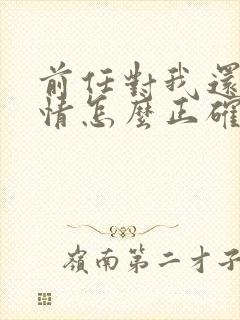 前任對我還
情怎麼正確
嶺南第二才子